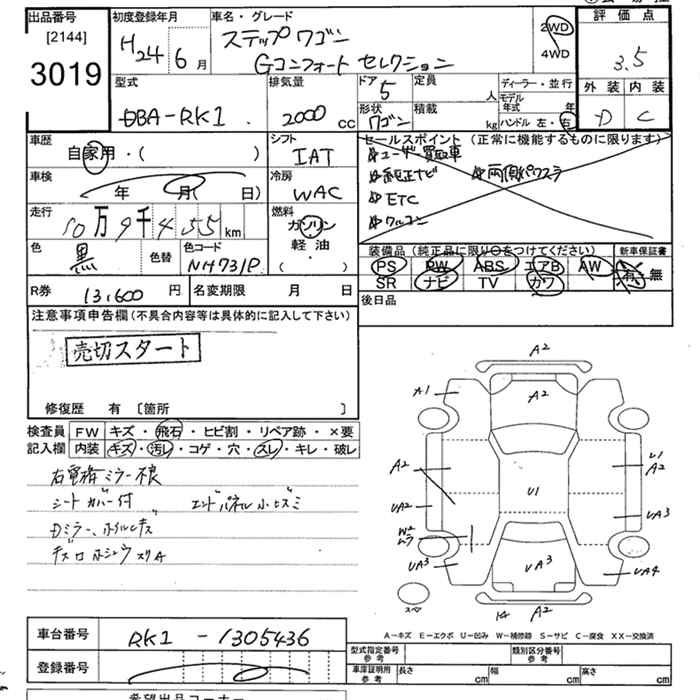 出品番号 初度登録年月 車名・グレード 評価点
[2144] H24 6月 ステップワゴン 2WD
3019 Gコンフォート セレクション 4WD 3.5
型式 排気量 ドア 定員 ディーラー・並行 外装 内装
DBA-RK1 2000cc 5 人 モデル年式 年 D C
形状 積載 ワゴン kg ハンドル 左・右
車歴 シフト セールスポイント(正常に機能するものに限ります)
自家用・( ) IAT ユーザー買取車
車検 冷房 純正ナビ 両側パワスラ
年 月( 日) WAC ETC
走行 燃料 ワルコン
10万9千455km ガソリン
色 色替 色コード 軽・油 装備品(純正品に限り○をつけてください) 新車保証書
黒 NH731P (・) PS PW ABS エアB AW 有・無
R券 13,600円 名変期限 月 日 SR ナビ TV カワ
注意事項申告欄(不具合内容等は具体的に記入して下さい) 後日品
売切スタート
修復歴 有 [箇所 ]
検査員 FW キズ・飛石・ヒビ割・リペア跡・×要
記入欄 内装 キズ・汚レ・コゲ・穴・スレ・キレ・破レ
右電格ミラー不良
シートカバー付 エンドパネル小ヒズミ
Dミラー、ホイルキズ
A2
A1 A2
A2 U1 A2
U1
UA2 UA3
W2 ムラ
UA3 UA3 UA4
スペア A2
A-キズ E-エクボ U-凹み W-補修跡 S-サビ C-腐食 XX-交換済
車台番号 RK1-1305436 型式指定番号 参考 類別区分番号 参考
登録番号 車庫証明用 参考 長さ cm 幅 cm 高さ cm
希望出品コーナー